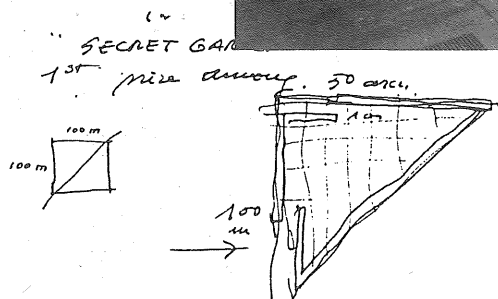 " SECRET GAR
1ST prize among. 50 arch.
1 m
100 m
100 m
100
m